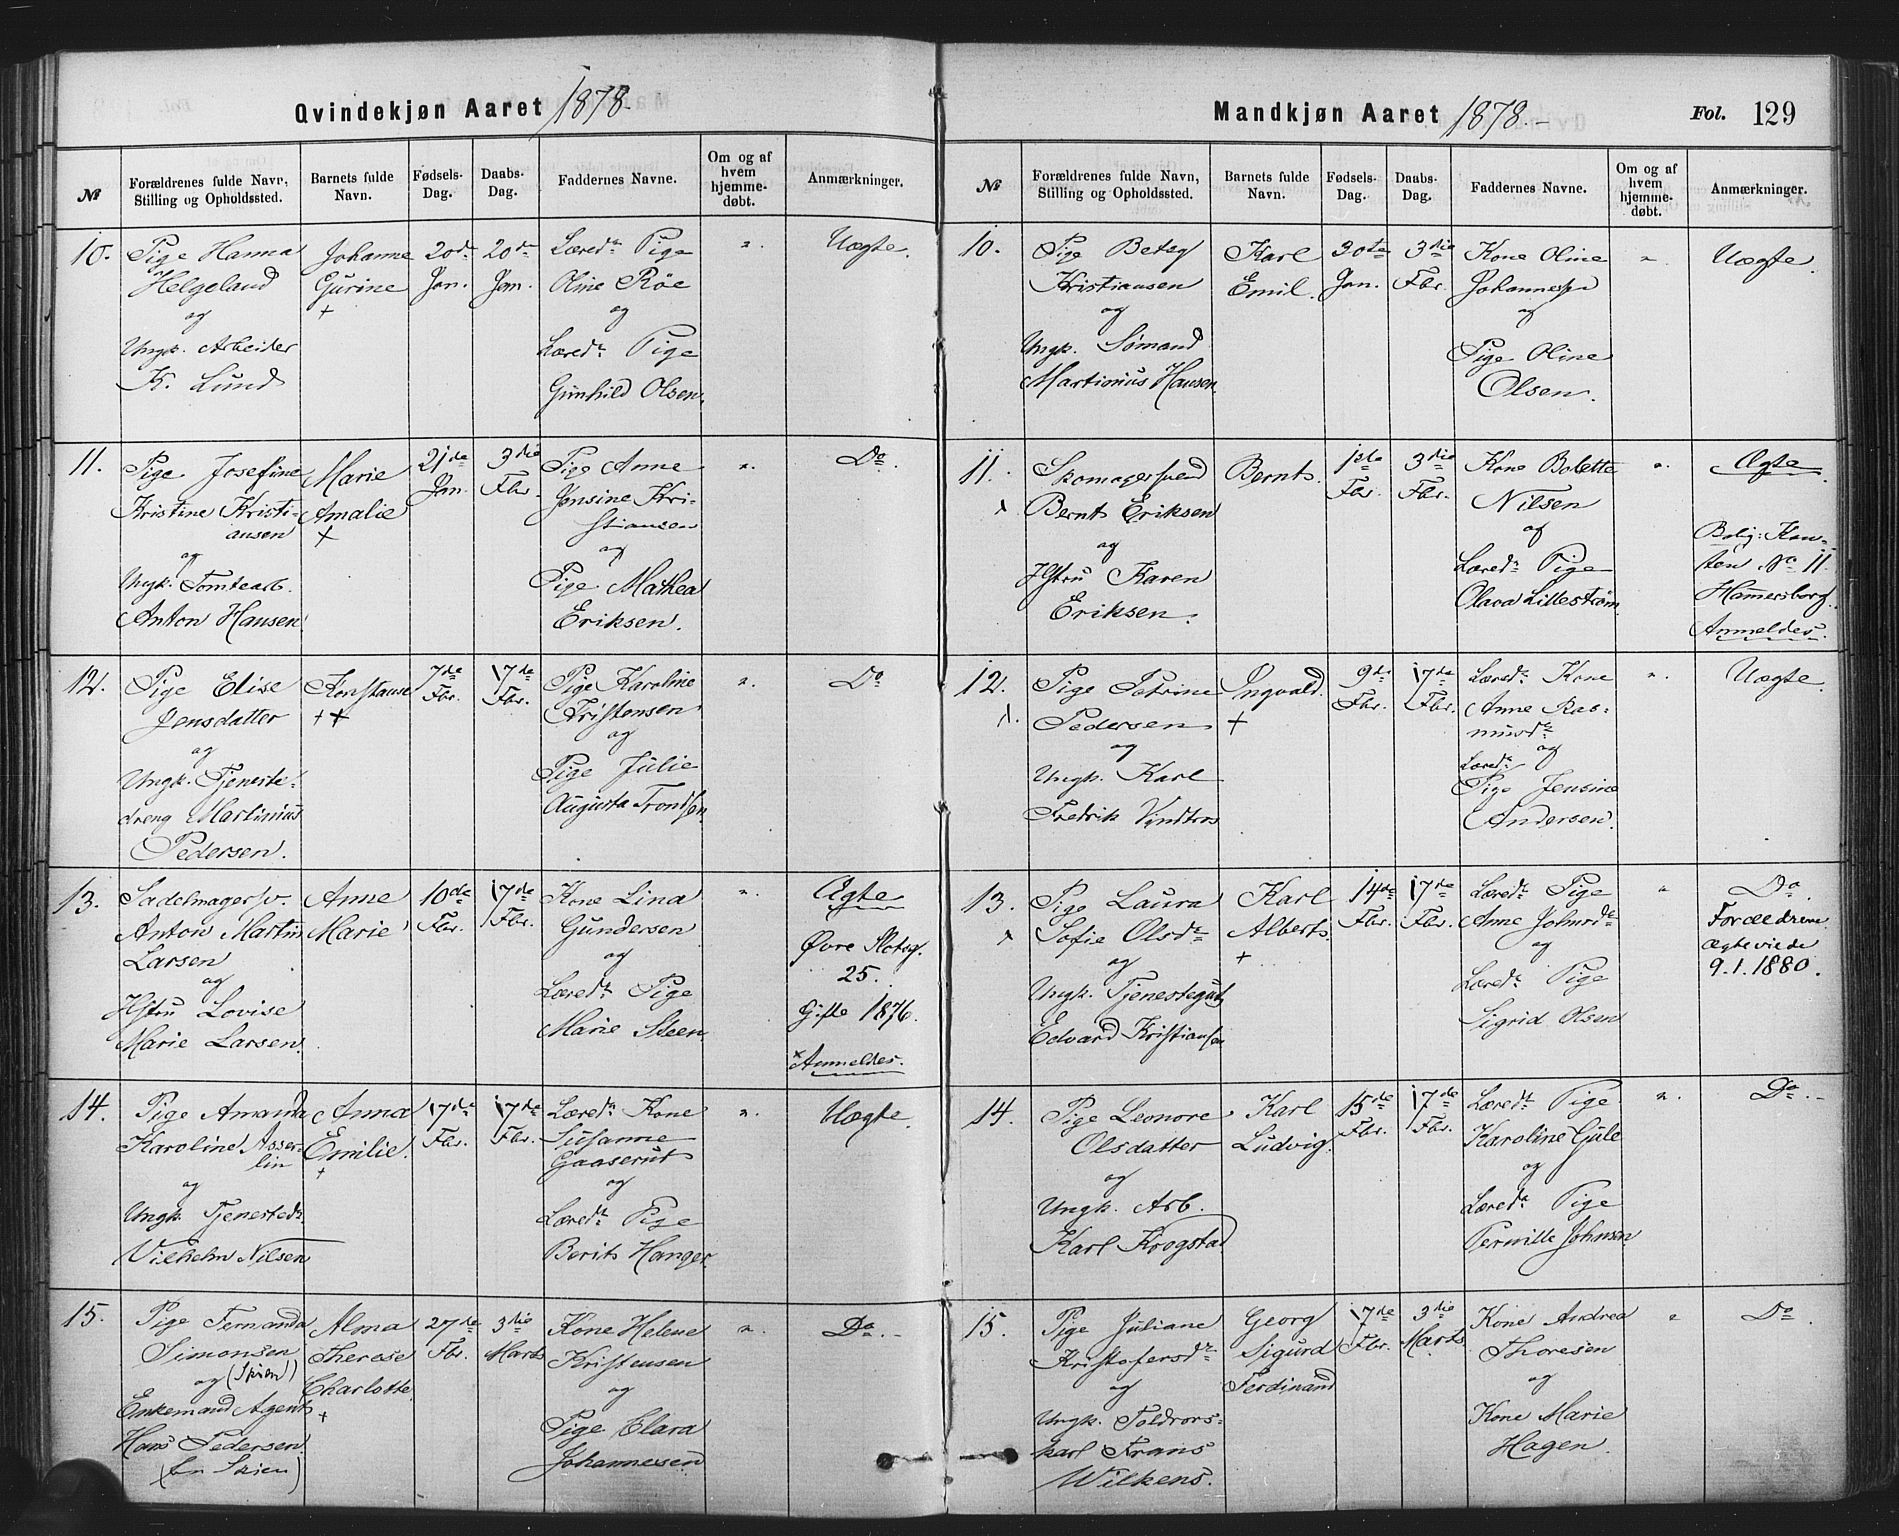 Qvindekjøn Aaret 1878.
№
Forældrenes fulde Navn,
Stilling og Opholdssted.
Barnets fulde
Navn.
Fødsels-
Dag.
Daabs-
Dag.
Faddernes Navne.
Om og af
hvem
hjemme-
døbt.
Anmærkninger.
10.
Pige Hanna
Helgeland
og
Ungk. Arbeider
K. Lund
Johanne
Gurine
+
20de
Jan.
20de
Jan.
Læred. Pige
Oline Røe
og
Læred. Pige
Gunhild Olsen.
"
Uægte.
11.
Pige Josefine
Kristine Kristi-
ansen
og
Ungk. Tomtearb.
Anton Hansen.
Marie
Amalie
+
21de
Jan.
3die
Fbr.
Pige Anne
Jonsine Kri-
stiansen
og
Pige Mathea
Eriksen.
"
Do.
12.
Pige Elise
Jensdatter
og
Ungk. Tjeneste-
dreng Martinius
Pedersen.
Konstanse
++
7de
Fbr.
17de
Fbr.
Pige Karoline
Kristensen
og
Pige Julie
Augusta Trondsen.
"
Do
13.
Sadelmagersv.
Anton Martin
Larsen
og
Hstru Lovise
Marie Larsen.
Anne
Marie
10de
Fbr.
17de
Fbr.
Kone Lina
Gundersen
og
Læred. Pige
Marie Steen.
"
Ægte
Øvre Slotsg.
25.
Gifte 1876.
× Anmeldes.
14.
Pige Amanda
Karoline Asser-
lin
og
Ungk. Tjenestedr.
Vilhelm Nilsen
Anna
Emilie.
+
17de
Fbr.
17de
Fbr.
Læred. Kone
Susanne
Gaaserud
og
Læred. Pige
Berit Hanger.
"
Uægte.
15.
Pige Fernanda
Simonsen
og
Enkemand Agent
Hans Pedersen
Alma
Therese
Charlotte
+
27de
Fbr.
3die
Marts
Kone Helene
Kristensen
og
Pige Clara
Johannessen
"
Do.-
Mandkjøn Aaret 1878.- Fol. 129
№
Forældrenes fulde Navn,
Stilling og Opholdssted.
Barnets fulde
Navn.
Fødsels-
Dag.
Daabs-
Dag.
Faddernes Navne.
Om og af
hvem
hjemme-
døbt.
Anmærkninger.
10.
Pige Betsy
Kristiansen
og
Ungk. Sømand
Martinius Hansen.
Karl
Emil.
30te
Jan.
3die
Fbr.
Kone Oline
Johannessen
og
Pige Oline
Olsen.
"
Uægte.
11.
×
Skomagersvend
Bernt Eriksen
og
Hstru Karen
Eriksen.
Bernt.
1ste
Fbr.
3die
Fbr.
Kone Bolette
Nilsen
og
Læred. Pige
Olava Lillestrøm.
"
Ægte
Bolig: Kan-
ten No 11.
Hamersborg.
Anmeldes.
12.
×.
Pige Petrine
Pedersen
og
Ungk. Karl
Fredrik Vindtros
Ingvald.
+
9de
Fbr.
17de
Fbr.
Læred. Kone
Anne Ras-
musd.
og
Læred.
Pige Jensine
Andersen.
"
Uægte.
13.
×
Pige Laura
Sofie Olsd.
og
Ungk. Tjenestegut
Edvard Kristiansen
Karl
Albert.
+
14de
Fbr.
17de
Fbr.
Læred. Pige
Anne Johnsd.
og
Læred. Pige
Sigrid Olsen
"
Do.
Forældrene
ægteviede
9.1.1880.
14.
Pige Leonore
Olsdatter
og
Ungk. Arb.
Karl Krogstad
Karl
Ludvig.
15de
Fbr.
17de
Fbr.
Læred. Pige
Karoline Gule
og
Læred. Pige
Pernille Johnsen
"
Do.-
15.
Pige Juliane
Kristofersd.
og
Ungk. Toldrors-
karl Frans
Wilkens.
Georg
Sigurd
Ferdinand
17de
Fbr.
3die
Marts
Kone Andrea
Thoresen
og
Kone Marie
Hagen.
"
Do.